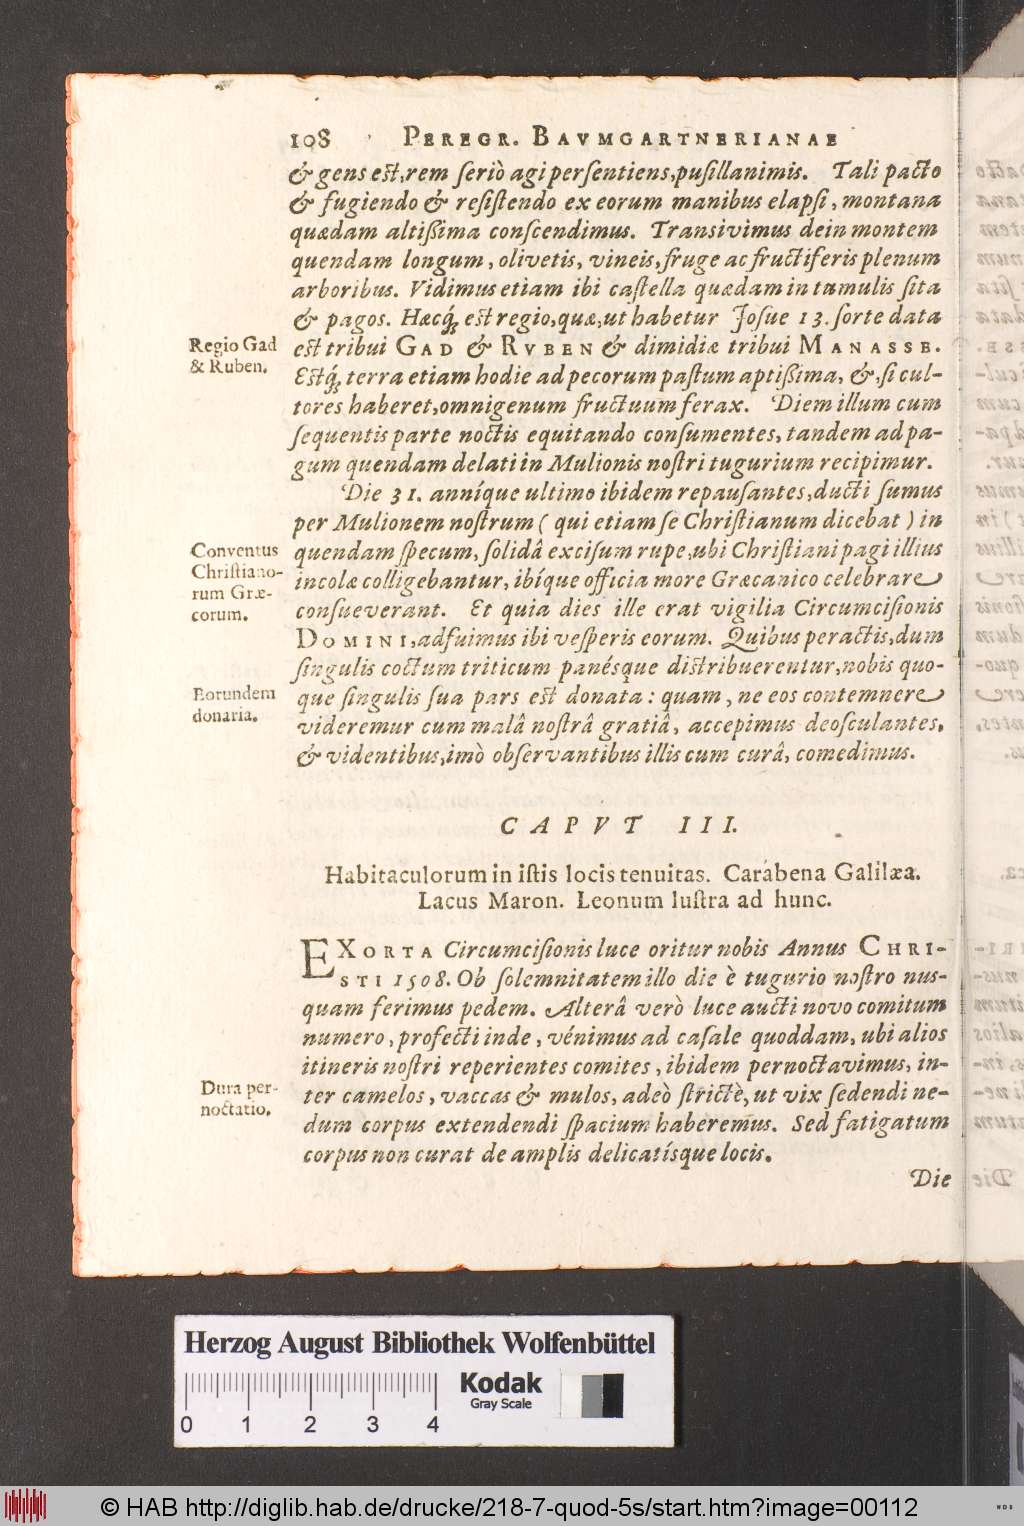 108 PEREGR. BAVMGARTNERIANAE
& gens est, rem seriò agi persentiens, pusillanimis. Tali pacto
& fugiendo & resistendo ex eorum manibus elapsi, montana
quædam altißima conscendimus. Transivimus dein montem
quendam longum, olivetis, vineis, fruge ac fructiferis plenum
arboribus. Vidimus etiam ibi castella quædam in tumulis sita
& pagos. Hæcq́; est regio, quæ, ut habetur Josue 13. sorte data
Regio Gad
& Ruben.
est tribui GAD & RVBEN & dimidiæ tribui MANASSE.
Estq́; terra etiam hodie ad pecorum pastum aptißima, &, si cul-
tores haberet, omnigenum fructuum ferax. Diem illum cum
sequentis parte noctis equitando consumentes, tandem ad pa-
gum quendam delati in Mulionis nostri tugurium recipimur.
Die 31. anníque ultimo ibidem repausantes, ducti sumus
per Mulionem nostrum ( qui etiam se Christianum dicebat ) in
Conventus
Christiano-
rum Græ-
corum.
quendam specum, solidâ excisum rupe, ubi Christiani pagi illius
incolæ colligebantur, ibíque officia more Græcanico celebrare
consueverant. Et quia dies ille erat vigilia Circumcisionis
DOMINI, adfuimus ibi vesperis eorum. Quibus peractis, dum
singulis coctum triticum panésque distribuerentur, nobis quo-
Eorundem
donaria.
que singulis sua pars est donata: quam, ne eos contemnere
videremur cum malâ nostrâ gratiâ, accepimus deosculantes,
& videntibus, imò observantibus illis cum curâ, comedimus.
CAPVT III.
Habitaculorum in istis locis tenuitas. Carábena Galilæa.
Lacus Maron. Leonum lustra ad hunc.
EXORTA Circumcisionis luce oritur nobis Annus CHRI-
STI 1508. Ob solemnitatem illo die è tugurio nostro nus-
quam ferimus pedem. Alterâ verò luce aucti novo comitum
numero, profecti inde, vénimus ad casale quoddam, ubi alios
itineris nostri reperientes comites, ibidem pernoctavimus, in-
Dura per-
noctatio.
ter camelos, vaccas & mulos, adeò strictè, ut vix sedendi ne-
dum corpus extendendi spacium haberemus. Sed fatigatum
corpus non curat de amplis delicatísque locis.
Die
Herzog August Bibliothek Wolfenbüttel
Kodak
Gray Scale
0 1 2 3 4
© HAB http://diglib.hab.de/drucke/218-7-quod-5s/start.htm?image=00112